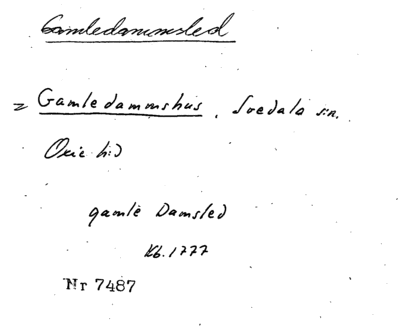 Gamledammsled
= Gamledammshus, Svedala sn.
Oxie hd
gamle Damsled
Kb. 1777
Nr 7487